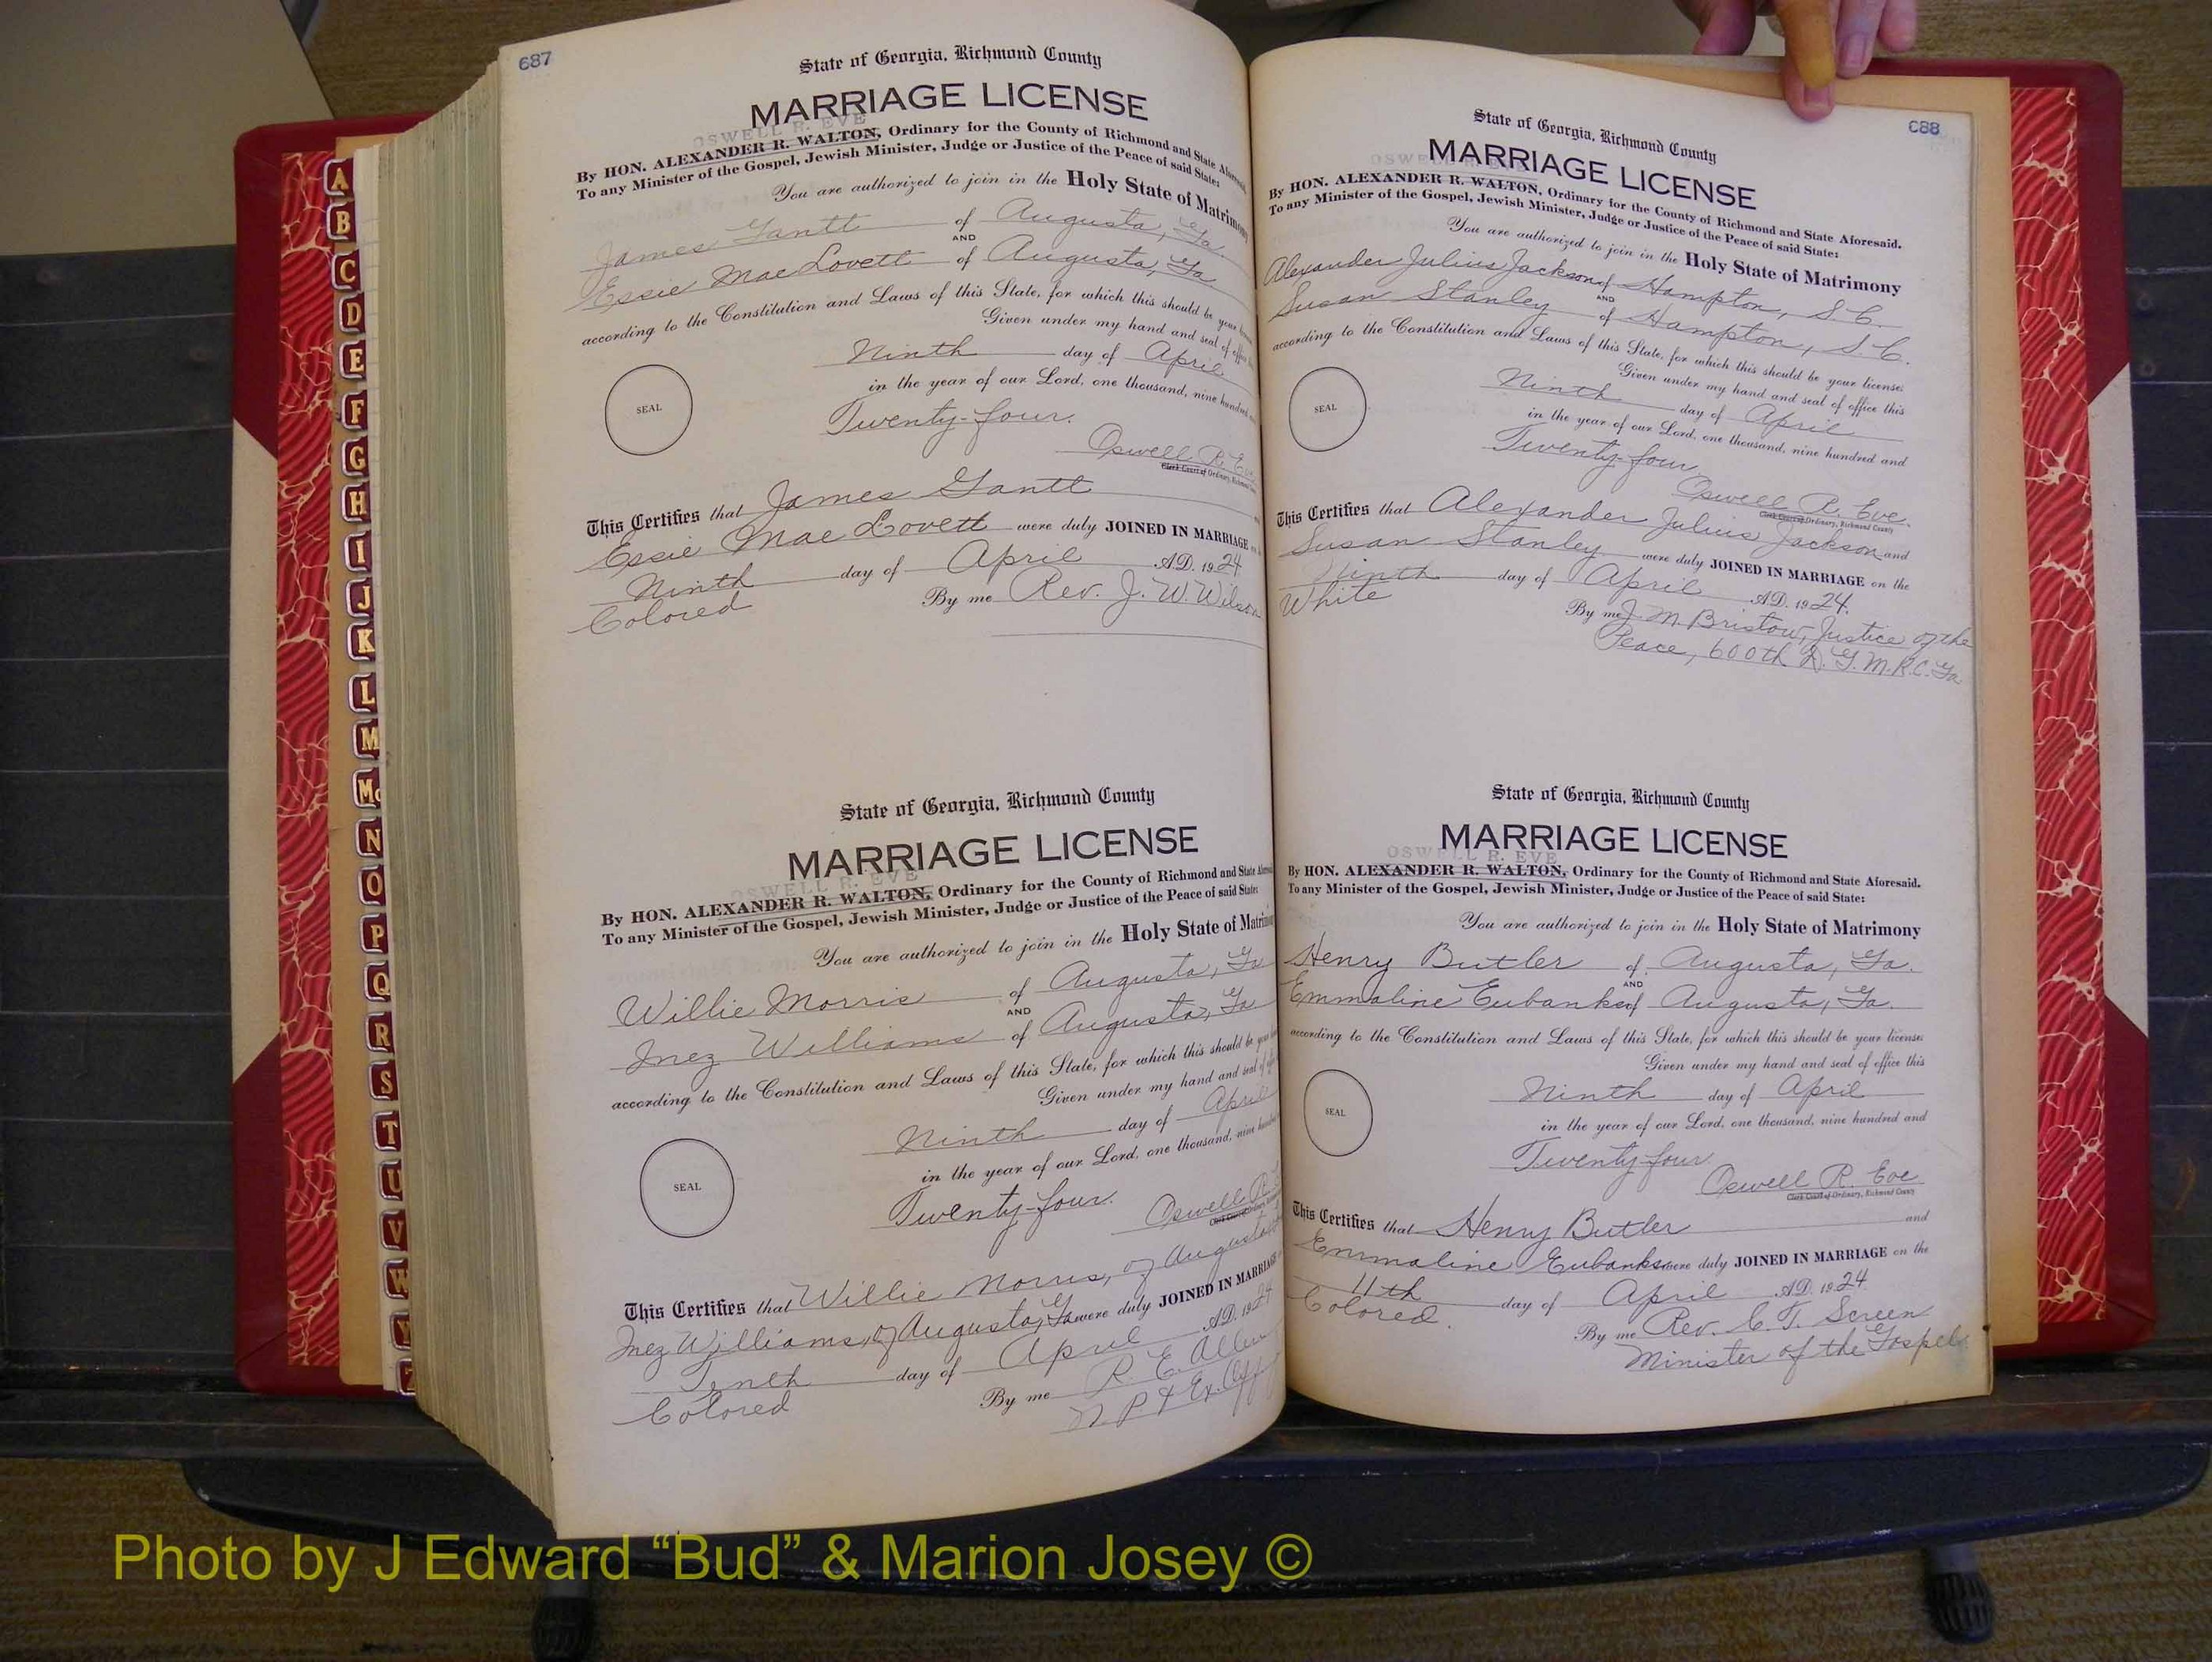 687
State of Georgia, Richmond County
MARRIAGE LICENSE
OSWELL R. EVE
By HON. ALEXANDER R. WALTON, Ordinary for the County of Richmond and State Aforesaid.
To any Minister of the Gospel, Jewish Minister, Judge or Justice of the Peace of said State:
You are authorized to join in the Holy State of Matrimony
James Gantt of Augusta, Ga.
AND
Essie Mae Lovett of Augusta, Ga
according to the Constitution and Laws of this State, for which this should be your
Given under my hand and seal of office
Ninth day of April
in the year of our Lord, one thousand, nine hundred
Twenty-four.
SEAL
Oswell R. Eve
Clerk Court of Ordinary, Richmond
This Certifies that James Gantt
Essie Mae Lovett were duly JOINED IN MARRIAGE
Ninth day of April A.D. 1924
Colored By me Rev. J. W. Wilson
State of Georgia, Richmond County
MARRIAGE LICENSE
OSWELL R. EVE
By HON. ALEXANDER R. WALTON, Ordinary for the County of Richmond and State
To any Minister of the Gospel, Jewish Minister, Judge or Justice of the Peace of said State:
You are authorized to join in the Holy State of Matrimony
Willie Morris of Augusta, Ga
AND
Inez Williams of Augusta, Ga
according to the Constitution and Laws of this State, for which this should be your
Given under my hand and seal of
Ninth day of April
in the year of our Lord, one thousand, nine
Twenty-four.
SEAL
Oswell R.
This Certifies that Willie Morris, of Augusta
Inez Williams, of Augusta, Ga were duly JOINED IN MARRIAGE
Tenth day of April A.D. 1924
Colored By me R. E. Allen
N P & Ex. Off
688
State of Georgia, Richmond County
MARRIAGE LICENSE
OSWELL R. EVE
By HON. ALEXANDER R. WALTON, Ordinary for the County of Richmond and State Aforesaid.
To any Minister of the Gospel, Jewish Minister, Judge or Justice of the Peace of said State:
You are authorized to join in the Holy State of Matrimony
Alexander Julius Jackson of Hampton, S.C.
AND
Susan Stanley of Hampton, S.C.
according to the Constitution and Laws of this State, for which this should be your license:
Given under my hand and seal of office this
Ninth day of April
in the year of our Lord, one thousand, nine hundred and
Twenty-four
SEAL
Oswell R. Eve.
Clerk Court of Ordinary, Richmond County
This Certifies that Alexander Julius Jackson and
Susan Stanley were duly JOINED IN MARRIAGE on the
Ninth day of April A.D. 1924.
White By me J. M. Bristow, Justice of the
Peace, 600th D. G. M. R.C. Ga
State of Georgia, Richmond County
MARRIAGE LICENSE
OSWELL R. EVE
By HON. ALEXANDER R. WALTON, Ordinary for the County of Richmond and State Aforesaid.
To any Minister of the Gospel, Jewish Minister, Judge or Justice of the Peace of said State:
You are authorized to join in the Holy State of Matrimony
Henry Butler of Augusta, Ga.
AND
Emmaline Eubanks of Augusta, Ga.
according to the Constitution and Laws of this State, for which this should be your license:
Given under my hand and seal of office this
Ninth day of April
in the year of our Lord, one thousand, nine hundred and
Twenty-four
SEAL
Oswell R. Eve
Clerk Court of Ordinary, Richmond County
This Certifies that Henry Butler and
Emmaline Eubanks were duly JOINED IN MARRIAGE on the
11th day of April A.D. 1924
Colored. By me Rev. C. T. Screen
Minister of the Gospel
A
B
C
D
E
F
G
H
I
J
K
L
M
Mc
N
O
P
Q
R
S
T
U
V
W
Y
Z
Photo by J Edward “Bud” & Marion Josey ©